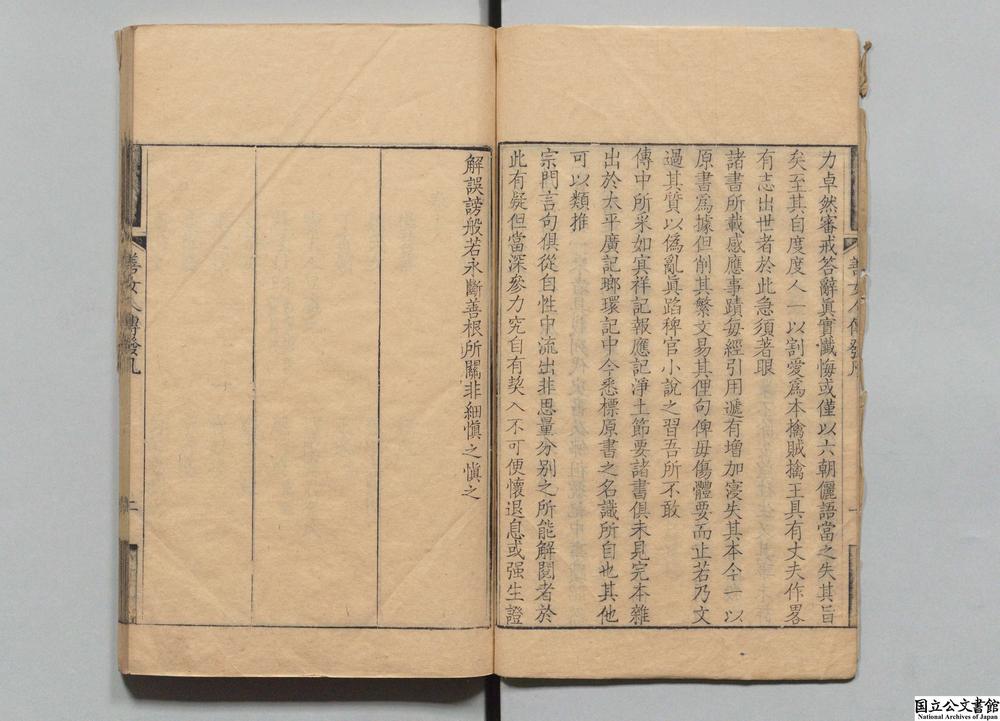 力卓然審戒答辭眞實懺悔或僅以六朝儷語當之失其旨
矣至其自度度人一以割愛爲本擒賊擒王具有丈夫作畧
有志出世者於此急須著眼
諸書所載感應事蹟每經引用遞有增加寖失其本今一以
原書爲據但削其繁文易其俚句俾毋傷體要而止若乃文
過其質以僞亂眞蹈稗官小說之習吾所不敢
傳中所采如冥祥記報應記淨土節要諸書俱未見完本雜
出於太平廣記瑯環記中今悉標原書之名識所自也其他
可以類推
宗門言句俱從自性中流出非思量分別之所能解閱者於
此有疑但當深參力究自有契入不可便懷退息或强生證
解誤謗般若永斷善根所關非細愼之愼之
善女人傳發凡
二
国立公文書館
National Archives of Japan